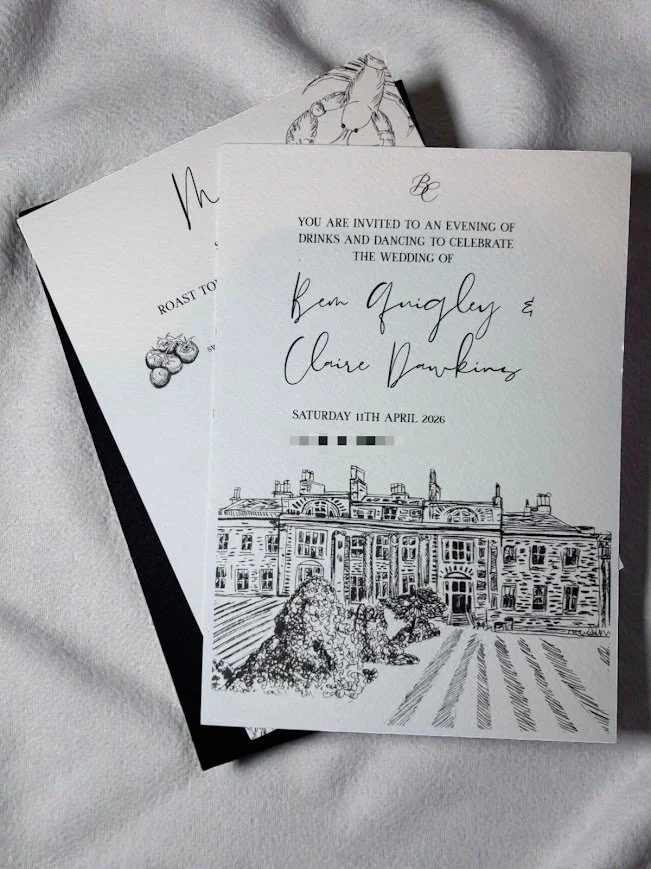 BC
YOU ARE INVITED TO AN EVENING OF
DRINKS AND DANCING TO CELEBRATE
THE WEDDING OF
Ben Quigley &
Claire Dawkins
SATURDAY 11TH APRIL 2026
M
ROAST TO